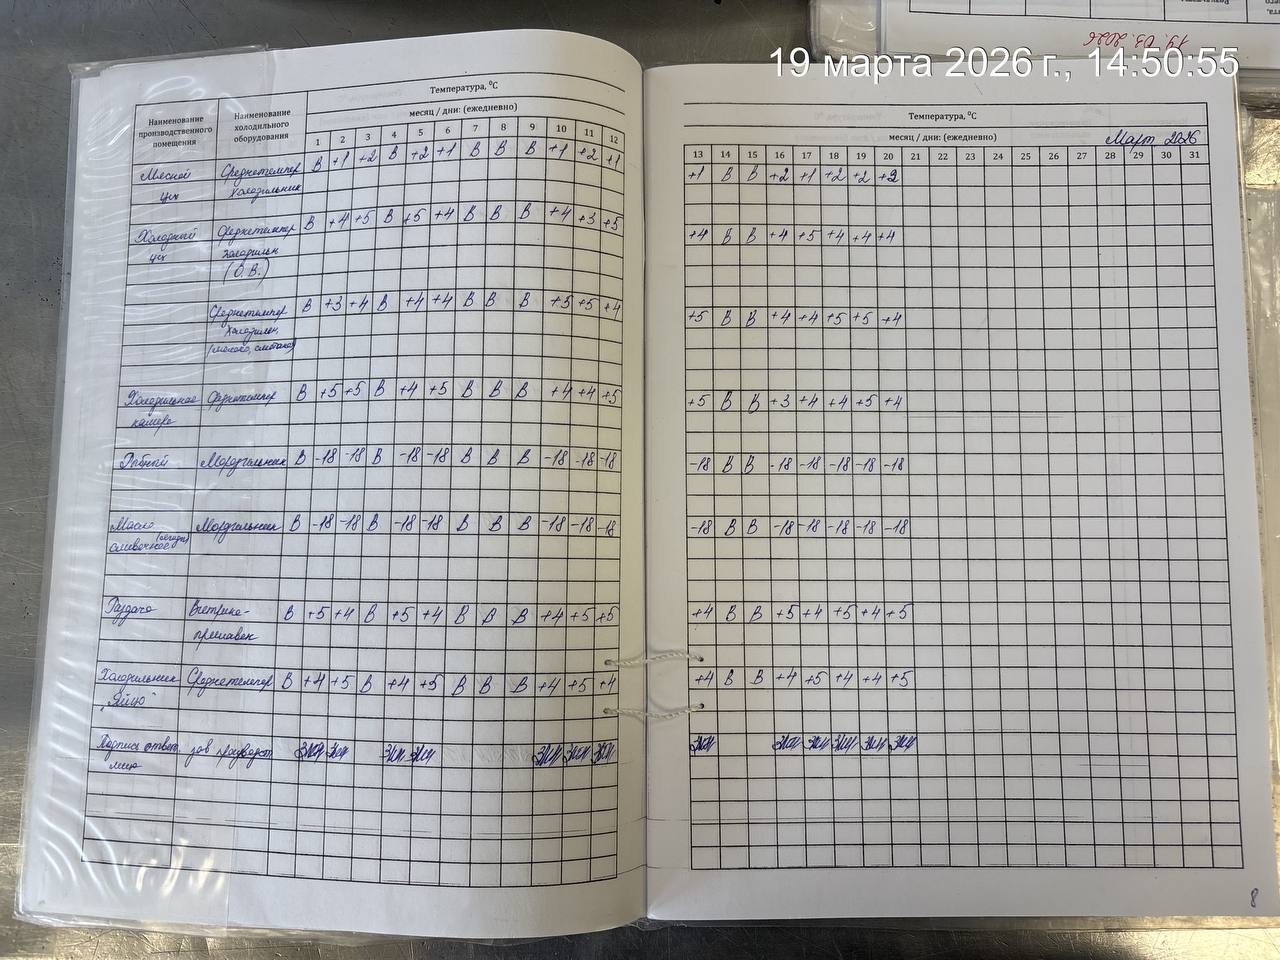 19 марта 2026 г., 14:50:55
19.03.2026
Наименование производственного помещения
Наименование холодильного оборудования
Температура, °С
месяц / дни: (ежедневно)
1 2 3 4 5 6 7 8 9 10 11 12
Мясной Среднетемпер В +1 +2 В +2 +1 В В В +1 +2 +1
цех холодильник
Холодный Среднетемпер В +4 +5 В +5 +4 В В В +4 +3 +5
цех холодильн
(О.В.)
Среднетемпер В +3 +4 В +4 +4 В В В +5 +5 +4
холодильн.
(молоко, сметана)
Холодильное Среднетемпер В +5 +5 В +4 +5 В В В +4 +4 +5
камера
Рыбный Морозильник В -18 -18 В -18 -18 В В В -18 -18 -18
Масло Морозильник В -18 -18 В -18 -18 В В В -18 -18 -18
сливочное
Раздача Витрина- В +5 +4 В +5 +4 В В В +4 +5 +5
прилавок
Холодильник Среднетемпер В +4 +5 В +4 +5 В В В +4 +5 +4
"Яйцо"
Подпись ответ. зав производст
лица
Температура, °С
месяц / дни: (ежедневно)
Март 2026
13 14 15 16 17 18 19 20 21 22 23 24 25 26 27 28 29 30 31
+1 В В +2 +1 +2 +2 +2
+4 В В +4 +5 +4 +4 +4
+5 В В +4 +4 +5 +5 +4
+5 В В +3 +4 +4 +5 +4
-18 В В -18 -18 -18 -18 -18
-18 В В -18 -18 -18 -18 -18
+4 В В +5 +4 +5 +4 +5
+4 В В +4 +5 +4 +4 +5
8